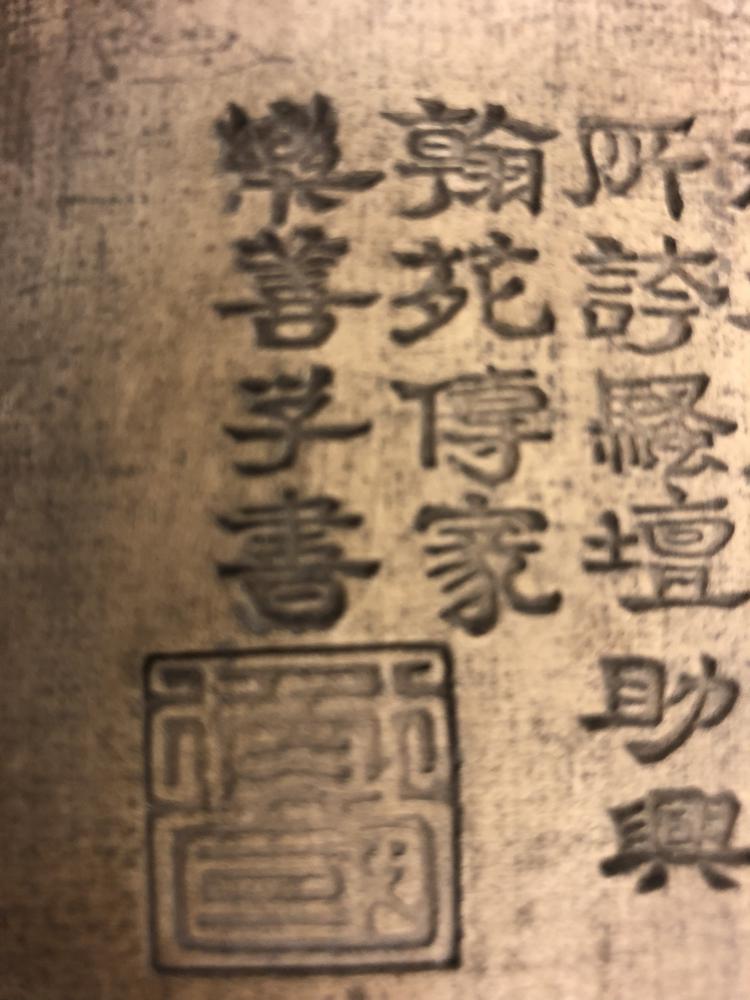 所誇騷壇助興
翰苑傳家
樂善子書